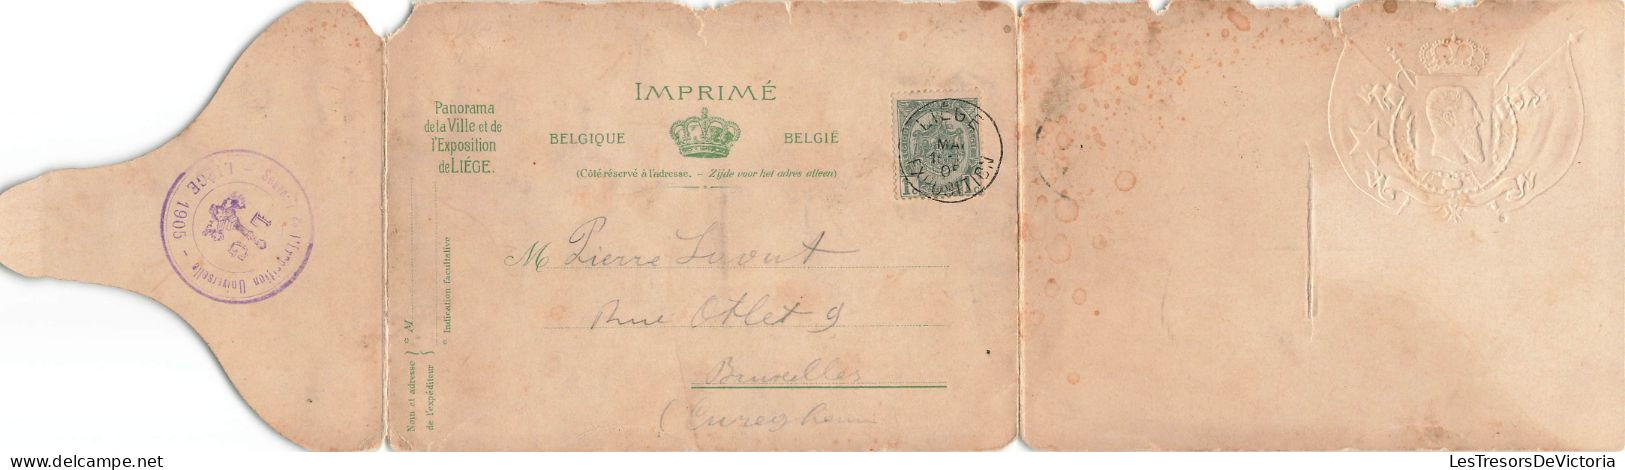 IMPRIMÉ
Panorama
de la Ville et de
l'Exposition
de LIÉGE.
BELGIQUE
BELGIË
(Côté réservé à l'adresse. - Zijde voor het adres alleen)
LIÉGE
MAI
1
Souvenir de l'Exposition Universelle
- LIÉGE 1905 -
M Pierre
Rue Otlet 9
Bruxelles
(Cureghem
Nom et adresse
de l'expéditeur
* M
* Indication facultative
LesTresorsDeVictoria